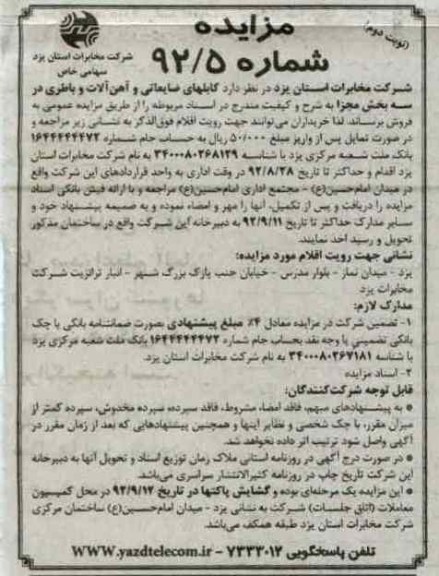 (نوبت دوم)
مزایده
شماره ۹۲/۵
شرکت مخابرات استان یزد
سهامی خاص
شرکت مخابرات استان یزد در نظر دارد کابلهای ضایعاتی و آهن‌آلات و باطری در
سه بخش مجزا به شرح و کیفیت مندرج در اسناد مربوطه را از طریق مزایده عمومی به
فروش برساند، لذا خریداران می‌توانند جهت رویت اقلام فوق‌الذکر به نشانی زیر مراجعه و
در صورت تمایل پس از واریز مبلغ ۵۰/۰۰۰ ریال به حساب جام شماره ۱۶۴۴۴۴۴۴۷۲
بانک ملت شعبه مرکزی یزد با شناسه ۳۴۰۰۰۸۰۲۶۸۱۲۹ به نام شرکت مخابرات استان
یزد اقدام و حداکثر تا تاریخ ۹۲/۸/۲۸ در وقت اداری به واحد قراردادهای این شرکت واقع
در میدان امام‌حسین(ع) - مجتمع اداری امام‌حسین(ع) مراجعه و با ارائه فیش بانکی اسناد
مزایده را دریافت و پس از تکمیل، آنها را مهر و امضاء نموده و به ضمیمه پیشنهاد خود و
سایر مدارک حداکثر تا تاریخ ۹۲/۹/۱۱ به دبیرخانه این شرکت واقع در ساختمان مذکور
تحویل و رسید اخذ نمایند.
نشانی جهت رویت اقلام مورد مزایده:
یزد - میدان نماز - بلوار مدرس - خیابان جنب پارک بزرگ شهر - انبار ترانزیت شرکت
مخابرات یزد
مدارک لازم:
۱- تضمین شرکت در مزایده معادل ۴٪ مبلغ پیشنهادی بصورت ضمانتنامه بانکی یا چک
بانکی تضمینی یا وجه نقد بحساب جام شماره ۱۶۴۴۴۴۴۴۷۲ بانک ملت شعبه مرکزی یزد
با شناسه ۳۴۰۰۰۸۰۲۶۷۱۸۱ به نام شرکت مخابرات استان یزد.
۲- اسناد مزایده
قابل توجه شرکت‌کنندگان:
● به پیشنهادهای مبهم، فاقد امضاء، مشروط، فاقد سپرده، سپرده مخدوش، سپرده کمتر از
میزان مقرر، با چک شخصی و نظایر اینها و همچنین پیشنهادهایی که بعد از زمان مقرر در
آگهی واصل شود ترتیب اثر داده نخواهد شد.
● در صورت درج آگهی در روزنامه استانی ملاک زمان توزیع اسناد و تحویل آنها به دبیرخانه
این شرکت تاریخ چاپ در روزنامه کثیرالانتشار سراسری می‌باشد.
● این مزایده یک مرحله‌ای بوده و گشایش پاکتها در تاریخ ۹۲/۹/۱۲ در محل کمیسیون
معاملات (اتاق جلسات) شرکت به نشانی یزد - میدان امام‌حسین(ع) ساختمان مرکزی
شرکت مخابرات استان یزد طبقه همکف می‌باشد.
تلفن پاسخگویی ۷۲۳۳۰۱۲ - WWW.yazdtelecom.ir